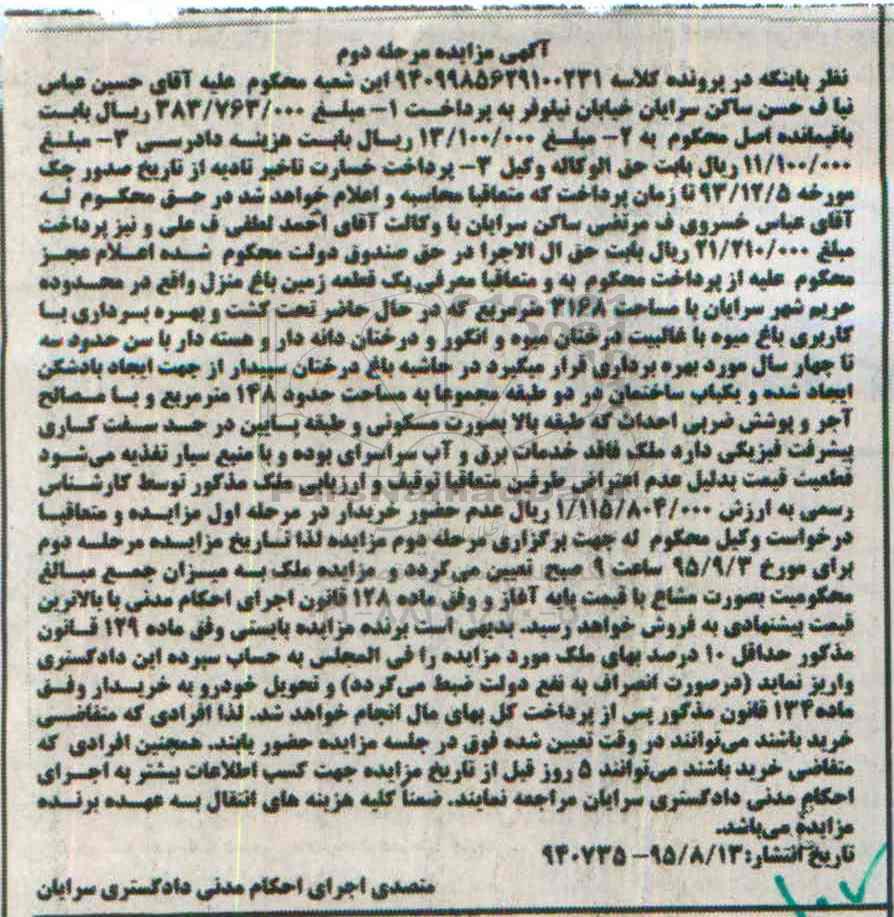 آگهی مزایده مرحله دوم
نظر باینکه در پرونده کلاسه ۹۴۰۹۹۸۵۶۲۹۱۰۰۲۳۱ این شعبه محکوم علیه آقای حسین عباس
نیا ف حسن ساکن سرایان خیابان نیلوفر به پرداخت ۱- مبلغ ۳۸۳/۷۶۳/۰۰۰ ریال بابت
باقیمانده اصل محکوم به ۲- مبلغ ۱۳/۱۰۰/۰۰۰ ریال بابت هزینه دادرسی ۳- مبلغ
۱۱/۱۰۰/۰۰۰ ریال بابت حق الوکاله وکیل ۳- پرداخت خسارت تاخیر تادیه از تاریخ صدور چک
مورخه ۹۳/۱۲/۵ تا زمان پرداخت که متعاقبا محاسبه و اعلام خواهد شد در حق محکوم له
آقای عباس خسروی ف مرتضی ساکن سرایان با وکالت آقای احمد لطفی ف علی و نیز پرداخت
مبلغ ۲۱/۲۱۰/۰۰۰ ریال بابت حق ال الاجرا در حق صندوق دولت محکوم شده اعلام عجز
محکوم علیه از پرداخت محکوم به و متعاقبا معرفی یک قطعه زمین باغ منزل واقع در محدوده
حریم شهر سرایان با مساحت ۳۱۶۸ مترمربع که در حال حاضر تحت کشت و بهره برداری با
کاربری باغ میوه با غالبیت درختان میوه و انگور و درختان دانه دار و هسته دار با سن حدود سه
تا چهار سال مورد بهره برداری قرار میگیرد در حاشیه باغ درختان سپیدار از جهت ایجاد بادشکن
ایجاد شده و یکباب ساختمان در دو طبقه مجموعا به مساحت حدود ۱۴۸ مترمربع و با مصالح
آجر و پوشش ضربی احداث که طبقه بالا بصورت مسکونی و طبقه پایین در حد سفت کاری
پیشرفت فیزیکی دارد ملک فاقد خدمات برق و آب سراسرای بوده و با منبع سیار تغذیه می‌شود
قطعیت قیمت بدلیل عدم اعتراض طرفین متعاقبا توقیف و ارزیابی ملک مذکور توسط کارشناس
رسمی به ارزش ۱/۱۱۵/۸۰۴/۰۰۰ ریال عدم حضور خریدار در مرحله اول مزایده و متعاقبا
درخواست وکیل محکوم له جهت برگزاری مرحله دوم مزایده لذا تاریخ مزایده مرحله دوم
برای مورخ ۹۵/۹/۳ ساعت ۹ صبح تعیین می‌گردد و مزایده ملک به میزان جمع مبالغ
محکومیت بصورت مشاع با قیمت پایه آغاز و وفق ماده ۱۲۸ قانون اجرای احکام مدنی با بالاترین
قیمت پیشنهادی به فروش خواهد رسید. بدیهی است برنده مزایده بایستی وفق ماده ۱۲۹ قانون
مذکور حداقل ۱۰ درصد بهای ملک مورد مزایده را فی المجلس به حساب سپرده این دادگستری
واریز نماید (درصورت انصراف به نفع دولت ضبط می‌گردد) و تحویل خودرو به خریدار وفق
ماده ۱۳۴ قانون مذکور پس از پرداخت کل بهای مال انجام خواهد شد. لذا افرادی که متقاضی
خرید باشند می‌توانند در وقت تعیین شده فوق در جلسه مزایده حضور یابند. همچنین افرادی که
متقاضی خرید باشند می‌توانند ۵ روز قبل از تاریخ مزایده جهت کسب اطلاعات بیشتر به اجرای
احکام مدنی دادگستری سرایان مراجعه نمایند. ضمناً کلیه هزینه های انتقال به عهده برنده
مزایده می‌باشد.
تاریخ انتشار: ۹۵/۸/۱۳- ۹۴۰۷۳۵
متصدی اجرای احکام مدنی دادگستری سرایان